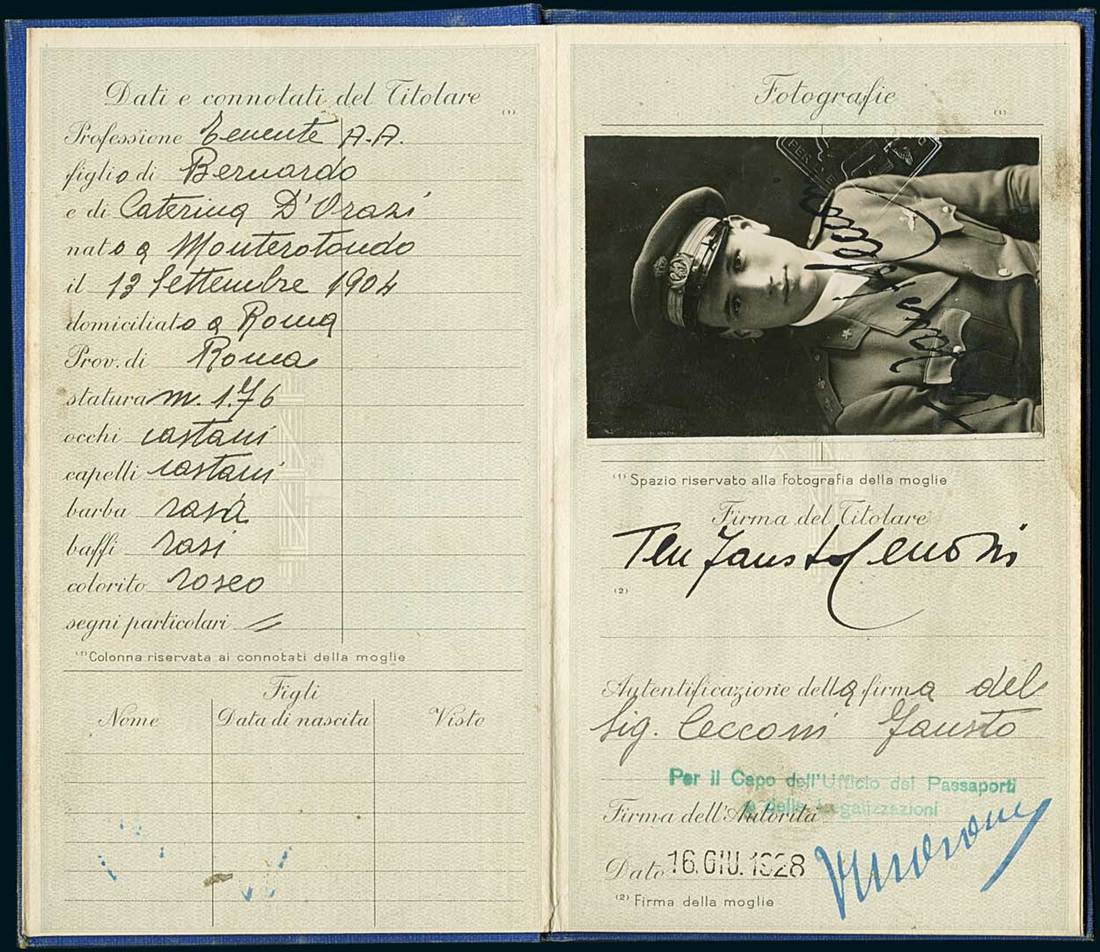 Dati e connotati del Titolare
(1)
Professione Tenente A.A.
figlio di Bernardo
e di Caterina D'Orazi
nato a Monterotondo
il 13 Settembre 1904
domiciliato a Roma
Prov. di Roma
statura m. 1.76
occhi castani
capelli castani
barba rasa
baffi rasi
colorito roseo
segni particolari =
(1) Colonna riservata ai connotati della moglie
Figli
Nome Data di nascita Visto
Fotografie
(1)
(1) Spazio riservato alla Fotografia della moglie
Firma del Titolare
Ten Fausto Cecconi
(2)
Autentificazione della firma del
Sig. Cecconi Fausto
Per il Capo dell'Ufficio dei Passaporti
e delle Legalizzazioni
Firma dell'Autorità
Data 16.GIU.1928
(2) Firma della moglie